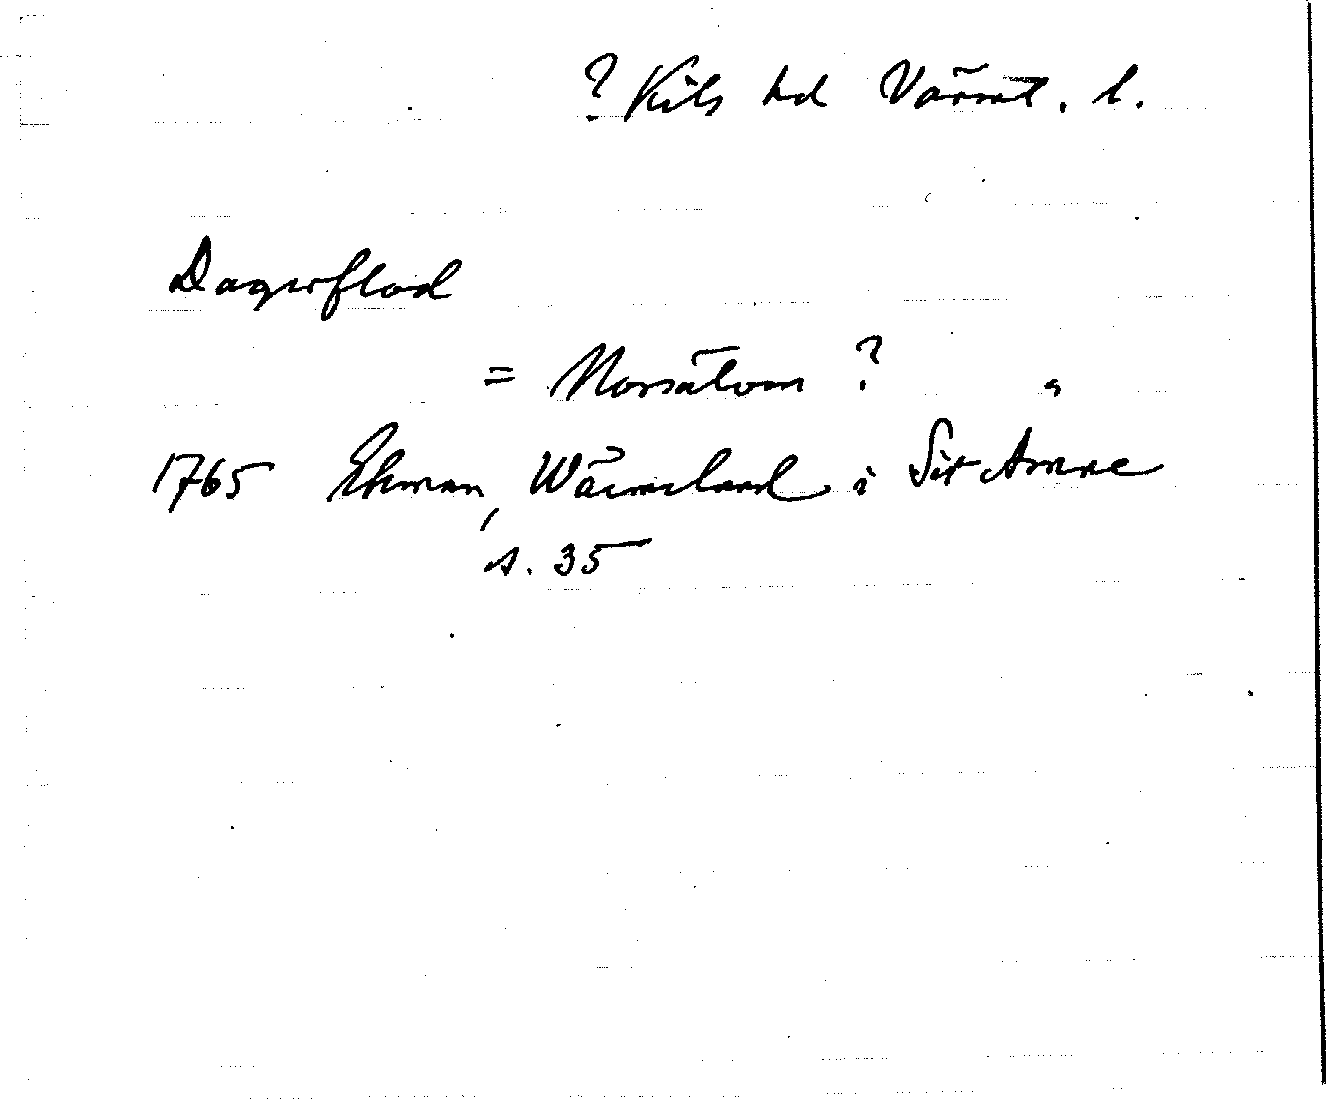 ? Kils hd Värml. l.
Dagerflod
= Norsälven ?
1765 Ekman, Wärmeland i Sit Ämne
s. 35